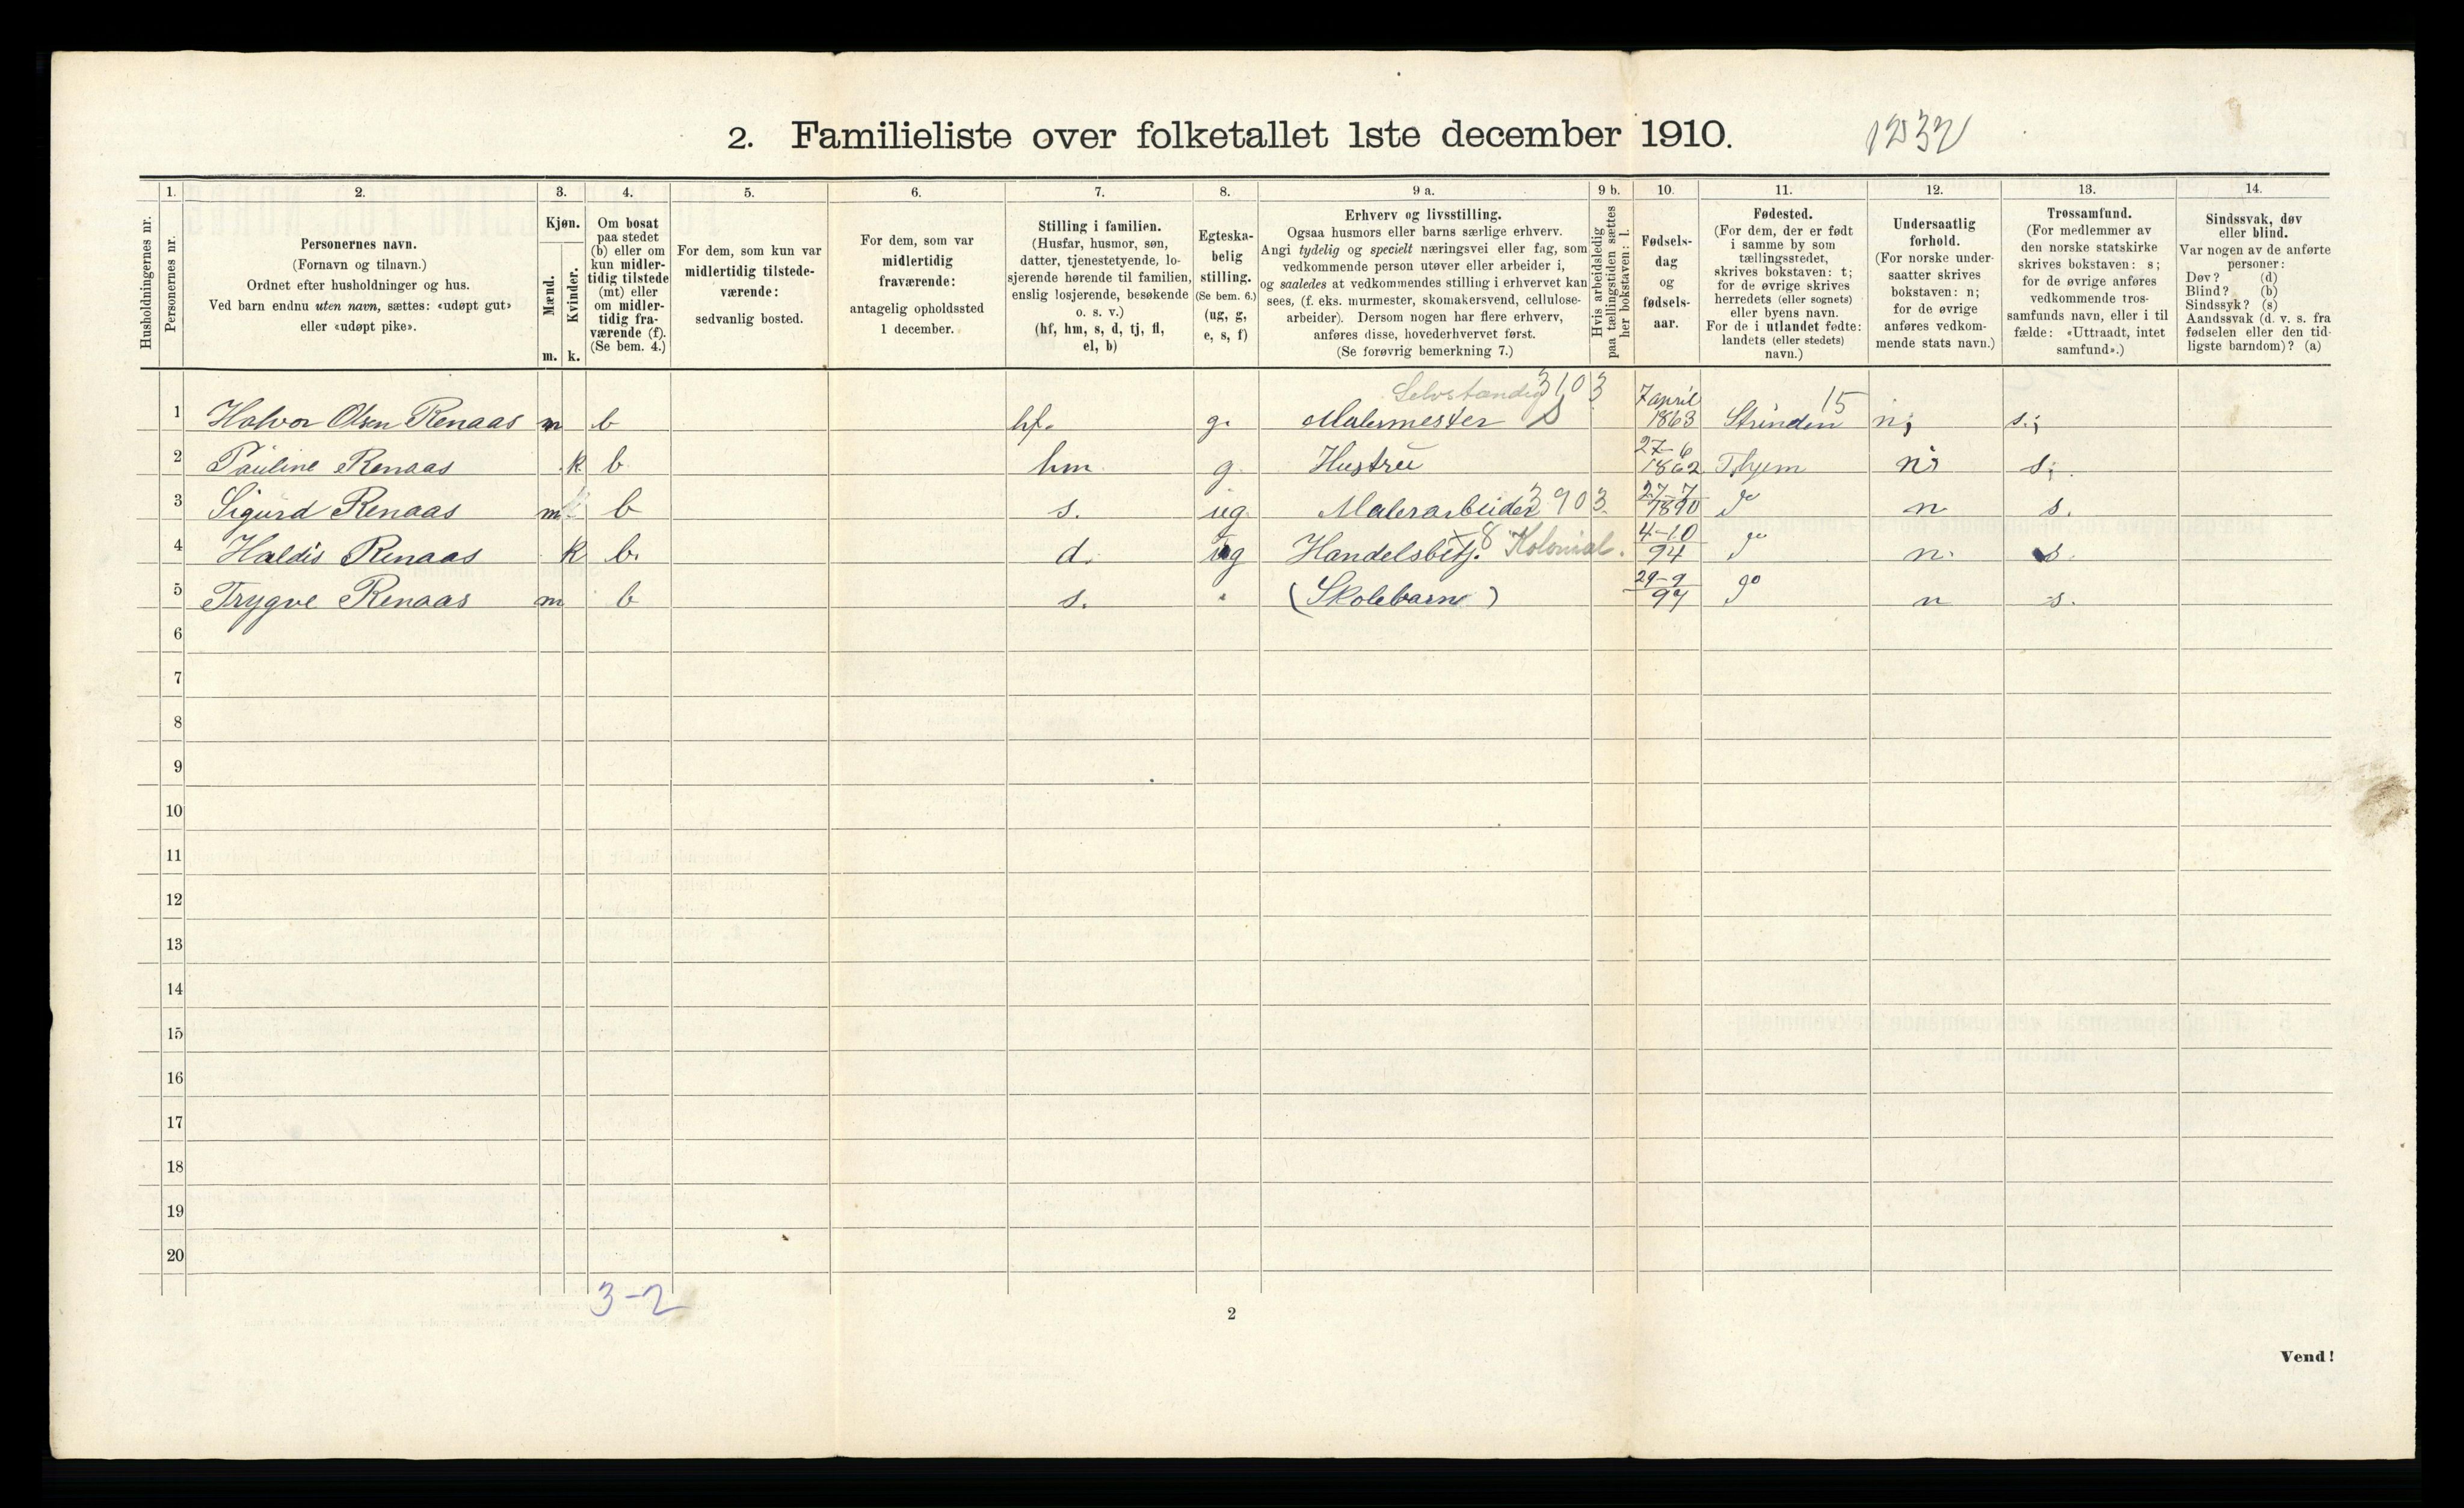 2. Familieliste over folketallet 1ste december 1910. 1232
Husholdningernes nr.
1. Personernes nr.
2. Personernes navn. (Fornavn og tilnavn.) Ordnet efter husholdninger og hus. Ved barn endnu uten navn, sættes: «udøpt gut» eller «udøpt pike».
3. Kjøn. Mænd. m. Kvinder. k.
4. Om bosat paa stedet (b) eller om kun midlertidig tilstede (mt) eller om midlertidig fraværende (f). (Se bem. 4.)
5. For dem, som kun var midlertidig tilstedeværende: sedvanlig bosted.
6. For dem, som var midlertidig fraværende: antagelig opholdssted 1 december.
7. Stilling i familien. (Husfar, husmor, søn, datter, tjenestetyende, losjerende hørende til familien, enslig losjerende, besøkende o. s. v.) (hf, hm, s, d, tj, fl, el, b)
8. Egteskabelig stilling. (Se bem. 6.) (ug, g, e, s, f)
9 a. Erhverv og livsstilling. Ogsaa husmors eller barns særlige erhverv. Angi tydelig og specielt næringsvei eller fag, som vedkommende person utøver eller arbeider i, og saaledes at vedkommendes stilling i erhvervet kan sees, (f. eks. murmester, skomakersvend, cellulosearbeider). Dersom nogen har flere erhverv, anføres disse, hovederhvervet først. (Se forøvrig bemerkning 7.)
9 b. Hvis arbeidsledig paa tællingstiden sættes her bokstaven: l.
10. Fødselsdag og fødselsaar.
11. Fødested. (For dem, der er født i samme by som tællingsstedet, skrives bokstaven: t; for de øvrige skrives herredets (eller sognets) eller byens navn. For de i utlandet fødte: landets (eller stedets) navn.)
12. Undersaatlig forhold. (For norske undersaatter skrives bokstaven: n; for de øvrige anføres vedkommende stats navn.)
13. Trossamfund. (For medlemmer av den norske statskirke skrives bokstaven: s; for de øvrige anføres vedkommende trossamfunds navn, eller i tilfælde: «Uttraadt, intet samfund».)
14. Sindssvak, døv eller blind. Var nogen av de anførte personer: Døv? (d) Blind? (b) Sindssyk? (s) Aandssvak (d. v. s. fra fødselen eller den tidligste barndom)? (a)
Selvstændig 3103
1 Halvor Olsen Renaas m b hf. g. Malermester S 7 april 1863 Strinden 15 n; s.;
2 Pauline Renaas k b hm g. Hustru 27-6 1862 Thyem n; s;
3 Sigurd Renaas m b s. ug. Malerarbeider 3903. 27-7 1890 do n s.
4 Haldis Renaas k b. d. ug Handelsbetj. 8 Kolonial. 4-10 94 do n. s.
5 Trygve Renaas m b s. (Skolebarn) 29-9 97 do n s.
6
7
8
9
10
11
12
13
14
15
16
17
18
19
20
3-2
2
Vend!